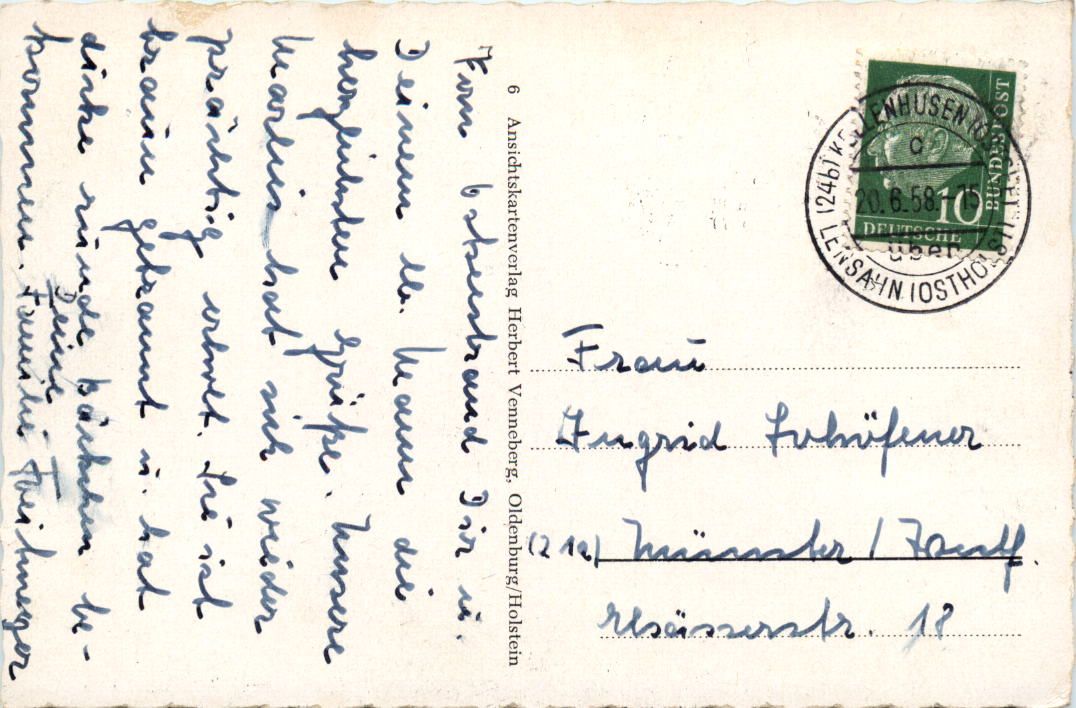 Vom Ostseestrand Dir u.
Deinem lb. Mann die
herzlichsten Grüße. Unsere
Marlis hat sich wieder
prächtig erholt. Sie ist
braun gebrannt u. hat
dicke runde Bäckchen be-
kommen.
Deine
Familie
6 Ansichtskartenverlag Herbert Venneberg, Oldenburg/Holstein
BUNDESPOST
10
DEUTSCHE
(24b) KELLENHUSEN (OSTSEE)
c
20.6.58.-15
über
LENSAHN (OSTHOLST)
Frau
Ingrid Schöfener
(21a) Münster / Westf.
Elsässerstr. 18